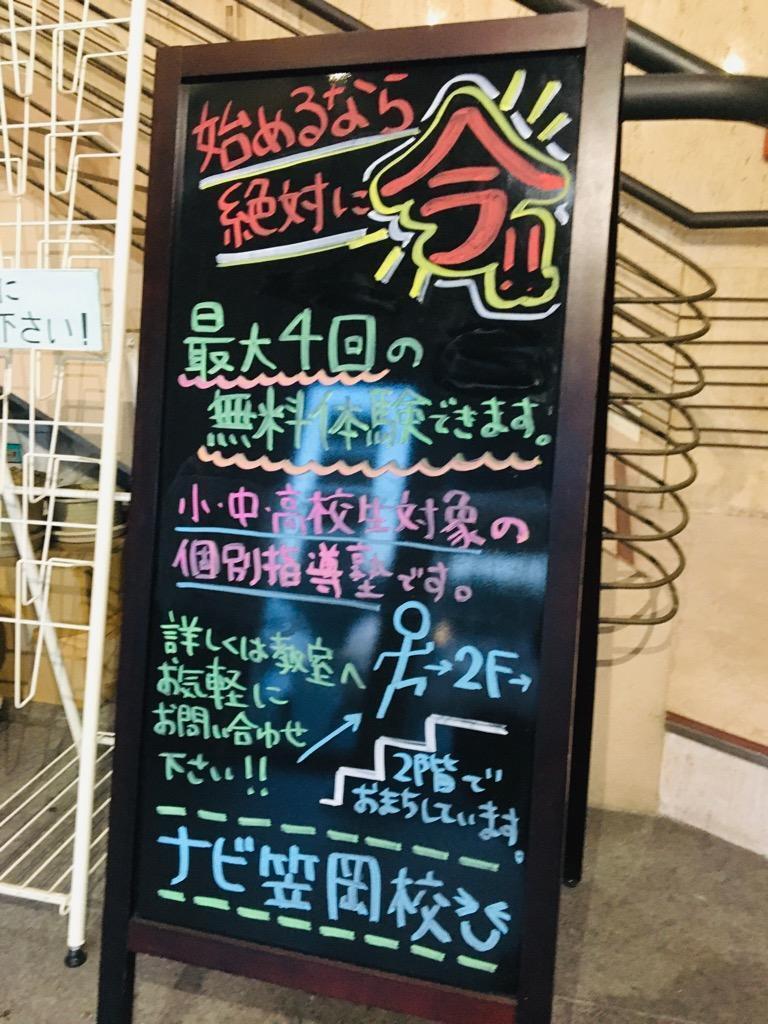 始めるなら
絶対に
今!!
最大4回の
無料体験できます。
小・中・高校生対象の
個別指導塾です。
詳しくは教室へ
お気軽に
お問い合わせ
下さい!!
→2F→
2階で
おまちしています。
ナビ笠岡校
に
下さい!